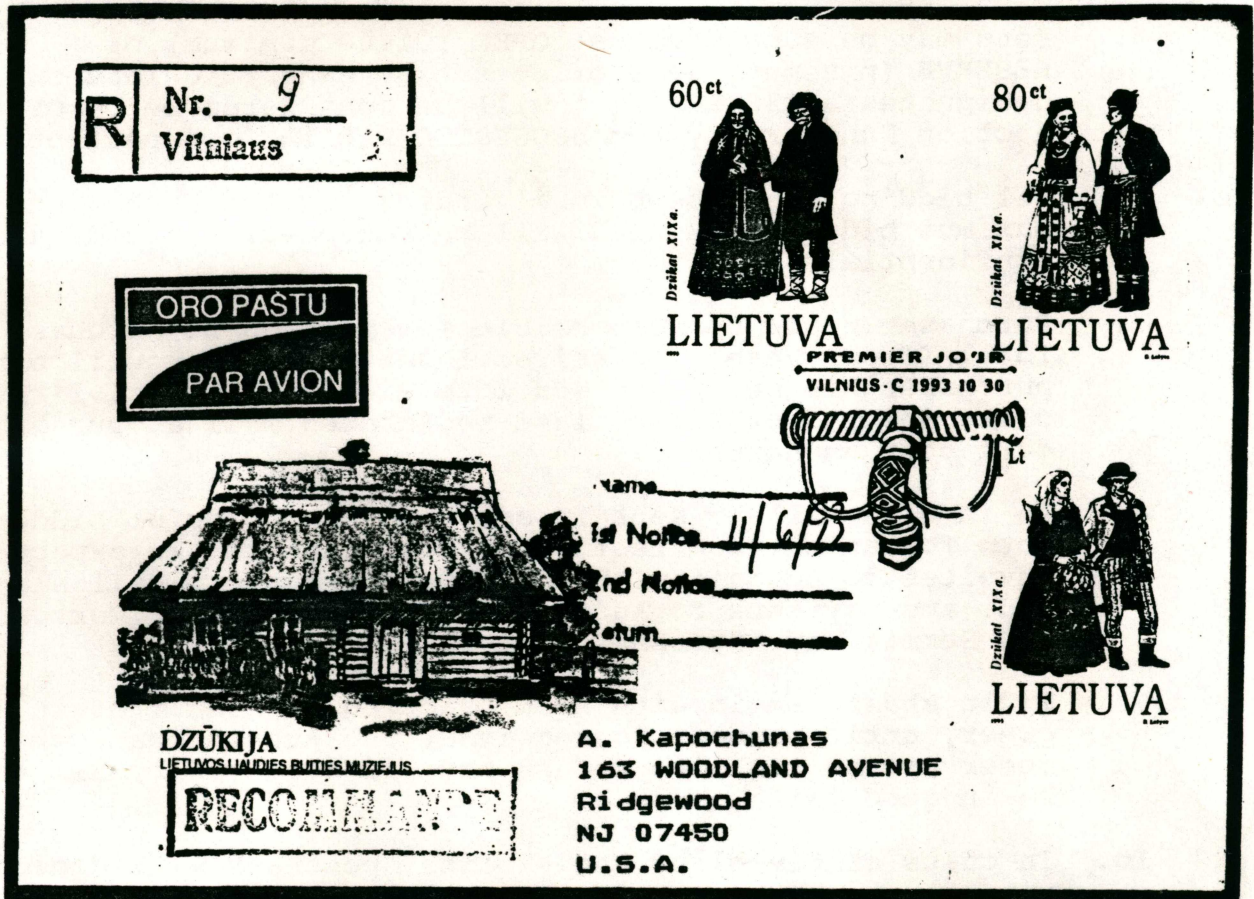 R Nr. 9
Vilniaus
60 ct
Dzūkai XIXa.
LIETUVA
80 ct
Dzūkai XIXa.
LIETUVA
ORO PAŠTU
PAR AVION
PREMIER JOUR
VILNIUS-C 1993 10 30
1 Lt
Dzūkai XIXa.
LIETUVA
Name
1st Notice 11/6/93
2nd Notice
Return
DZŪKIJA
LIETUVOS LIAUDIES BUITIES MUZIEJUS
RECOMMANDE
A. Kapochunas
163 WOODLAND AVENUE
Ridgewood
NJ 07450
U.S.A.